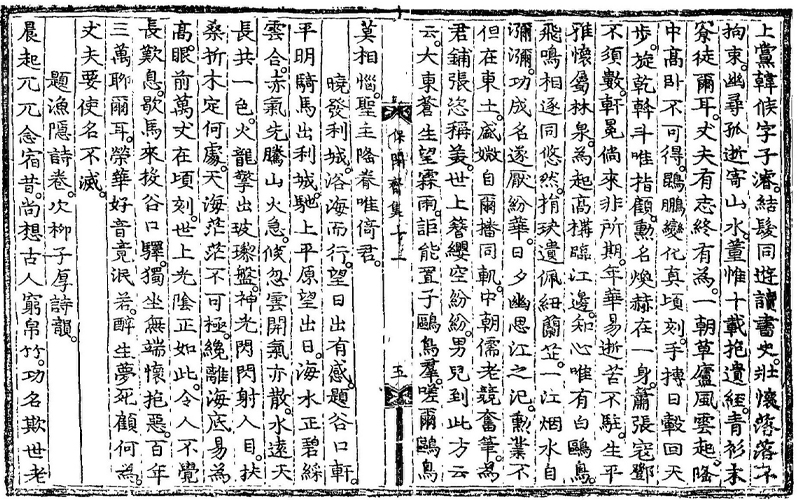 上黨韓候字子濬。結髮同遊讀書史。壯懷落落不
拘束。幽尋孤逝寄山水。董惟十載抱遺經。青衫末
寮徒爾耳。丈夫有志終有為。一朝草廬風雲起。隆
中高卧不可得。鵾鵬變化真頃刻。手搏日轂回天
步。旋乾斡斗唯指顧。勳名煥赫在一身。蕭張寇鄧
不須數。軒冕倘來非所期。年華易逝苦不駐。生平
雅懷屬林泉。為起高樽臨江邊。知心唯有白鷗鳥。
飛鳴相逐同悠然。捐玦遺佩紉蘭芷。一江烟水自
瀰瀰。功成名遂厭紛華。日夕幽思江之汜。勲業不
但在東土。盛媺自爾播同軌。中朝儒老競奮筆。為
君鋪張恣稱美。世上簪纓空紛紛。男兒到此方云
云。大東蒼生望霖雨。詎能置子鷗鳥羣。嗟爾鷗鳥
保閑齋集十一
五
莫相惱。聖主隆眷唯倚君。
曉發利城。洛海而行。望日出有感。題谷口軒。
平明騎馬出利城。馳上平原望出日。海水正碧綵
雲合。赤氣先騰山火急。倏忽雲開氣亦散。水遠天
長共一色。火龍擎出玻瓈盤。神光閃閃射人目。扶
桑折木定何處。天海茫茫不可極。纔離海底易為
高。眼前萬丈在頃刻。世上光陰正如此。令人不覺
長歎息。歇馬來投谷口驛。獨坐無端懷抱惡。百年
三萬聊爾耳。榮華好音竟泯若。醉生夢死顧何為。
丈夫要使名不滅。
題漁隱詩卷。次柳子厚詩韻。
晨起兀兀念宿昔。尚想古人窮帛竹。功名欺世老